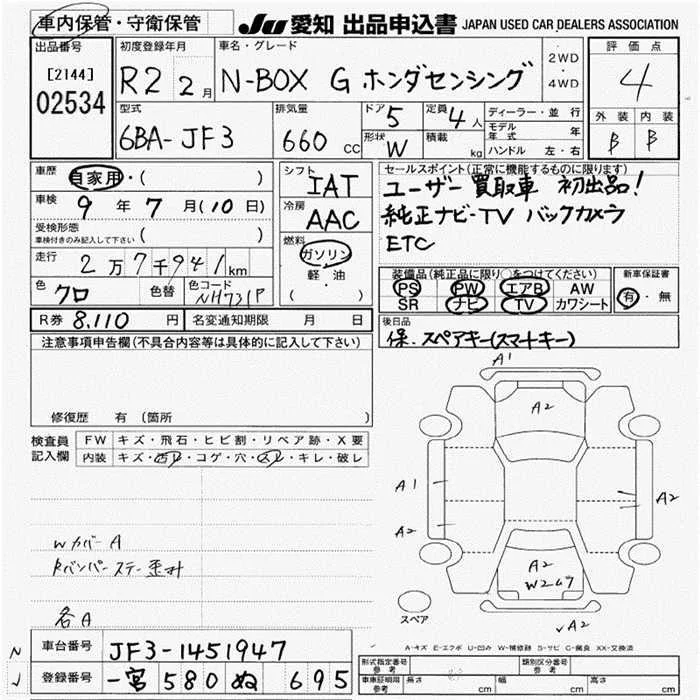 車内保管・守衛保管
JU 愛知 出品申込書 JAPAN USED CAR DEALERS ASSOCIATION
出品番号
[2144]
02534
初度登録年月
R2 2月
車名・グレード
N-BOX G ホンダセンシング
2WD
・
4WD
評価点
4
外装 内装
B B
型式
6BA-JF3
排気量
660 cc
ドア
5
定員
4人
形状
W
積載
kg
ディーラー・並行
モデル年式 年
ハンドル 左・右
車歴
自家用・( )
車検
9年7月(10日)
受検形態
車検付きのみ記入して下さい ( )
走行
2万7千941km
色
クロ
色替
色コード
NH731P
シフト
IAT
冷房
AAC
燃料
ガソリン
軽・油
( )
セールスポイント(正常に機能するものに限ります)
ユーザー買取車 初出品!
純正ナビ・TV バックカメラ
ETC
装備品(純正品に限り○をつけてください)
PS PW エアB AW
SR ナビ TV カワシート
新車保証書
有・無
R券 8,110円
名変通知期限 月 日
後日品
保.スペアキー(スマートキー)
注意事項申告欄(不具合内容等は具体的に記入して下さい)
修復歴 有 〔箇所 〕
検査員
記入欄
FW キズ・飛石・ヒビ割・リペア跡・X要
内装 キズ・汚レ・コゲ・穴・スレ・キレ・破レ
WカバーA
Rバンパーステー歪み
各A
A1
A2
A1
A2
A2
A2
W2 L7
A2
スペア
A-キズ E-エクボ U-凹み W-補修跡 S-サビ C-腐食 XX-交換済
車台番号
JF3-1451947
登録番号
一宮 580 ぬ 695
形式指定番号
参考
類別区分番号
参考
車庫証明用
参考
長さ cm
幅 cm
高さ cm